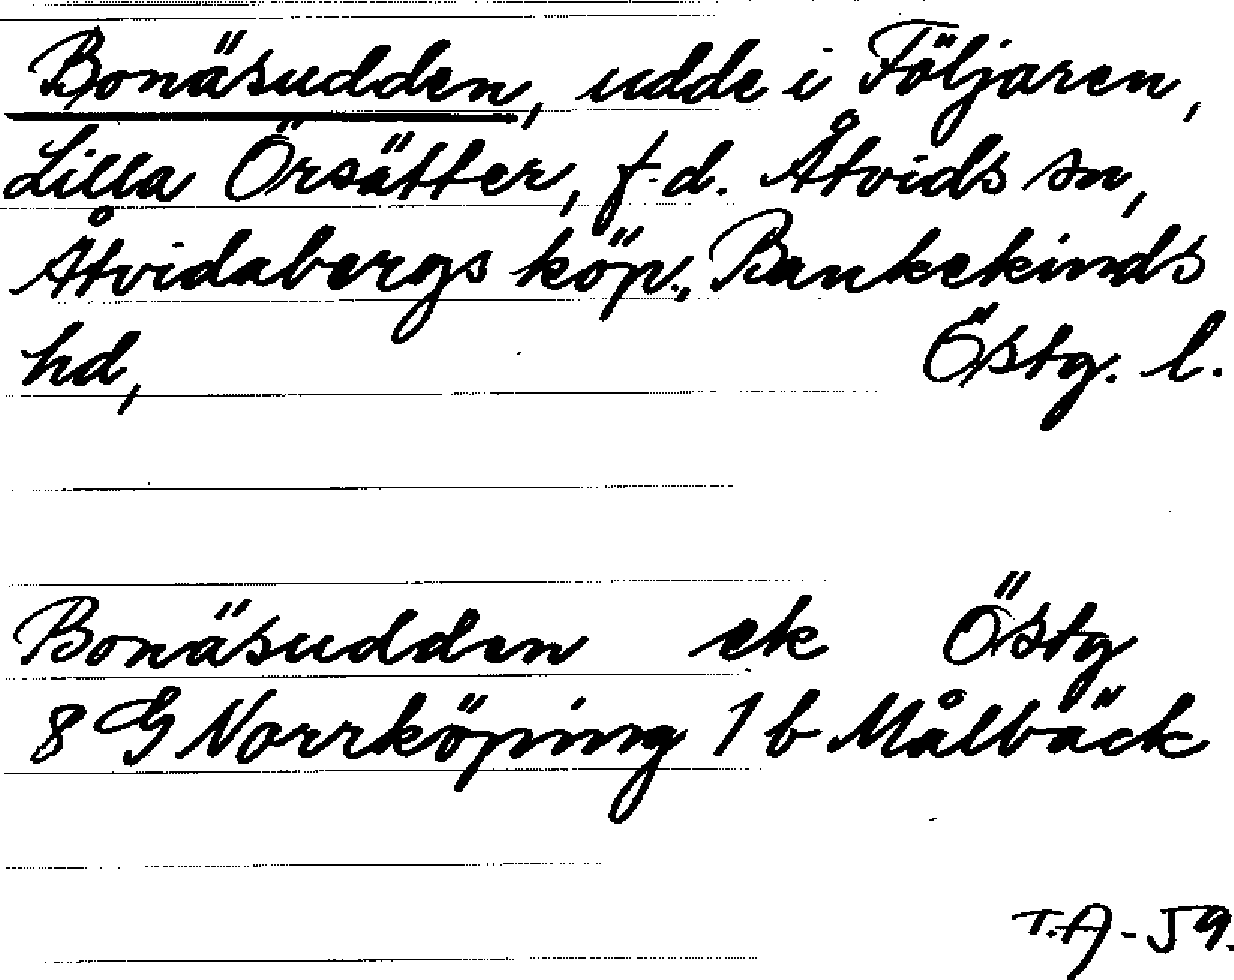 Bonäsudden, udde i Följaren,
Lilla Örsätter, f.d. Åtvids sn,
Åtvidabergs köp., Bankekinds
hd, Östg. l.
Bonäsudden ek Östg
8 G Norrköping 1 b Målbäck
T.A-59.